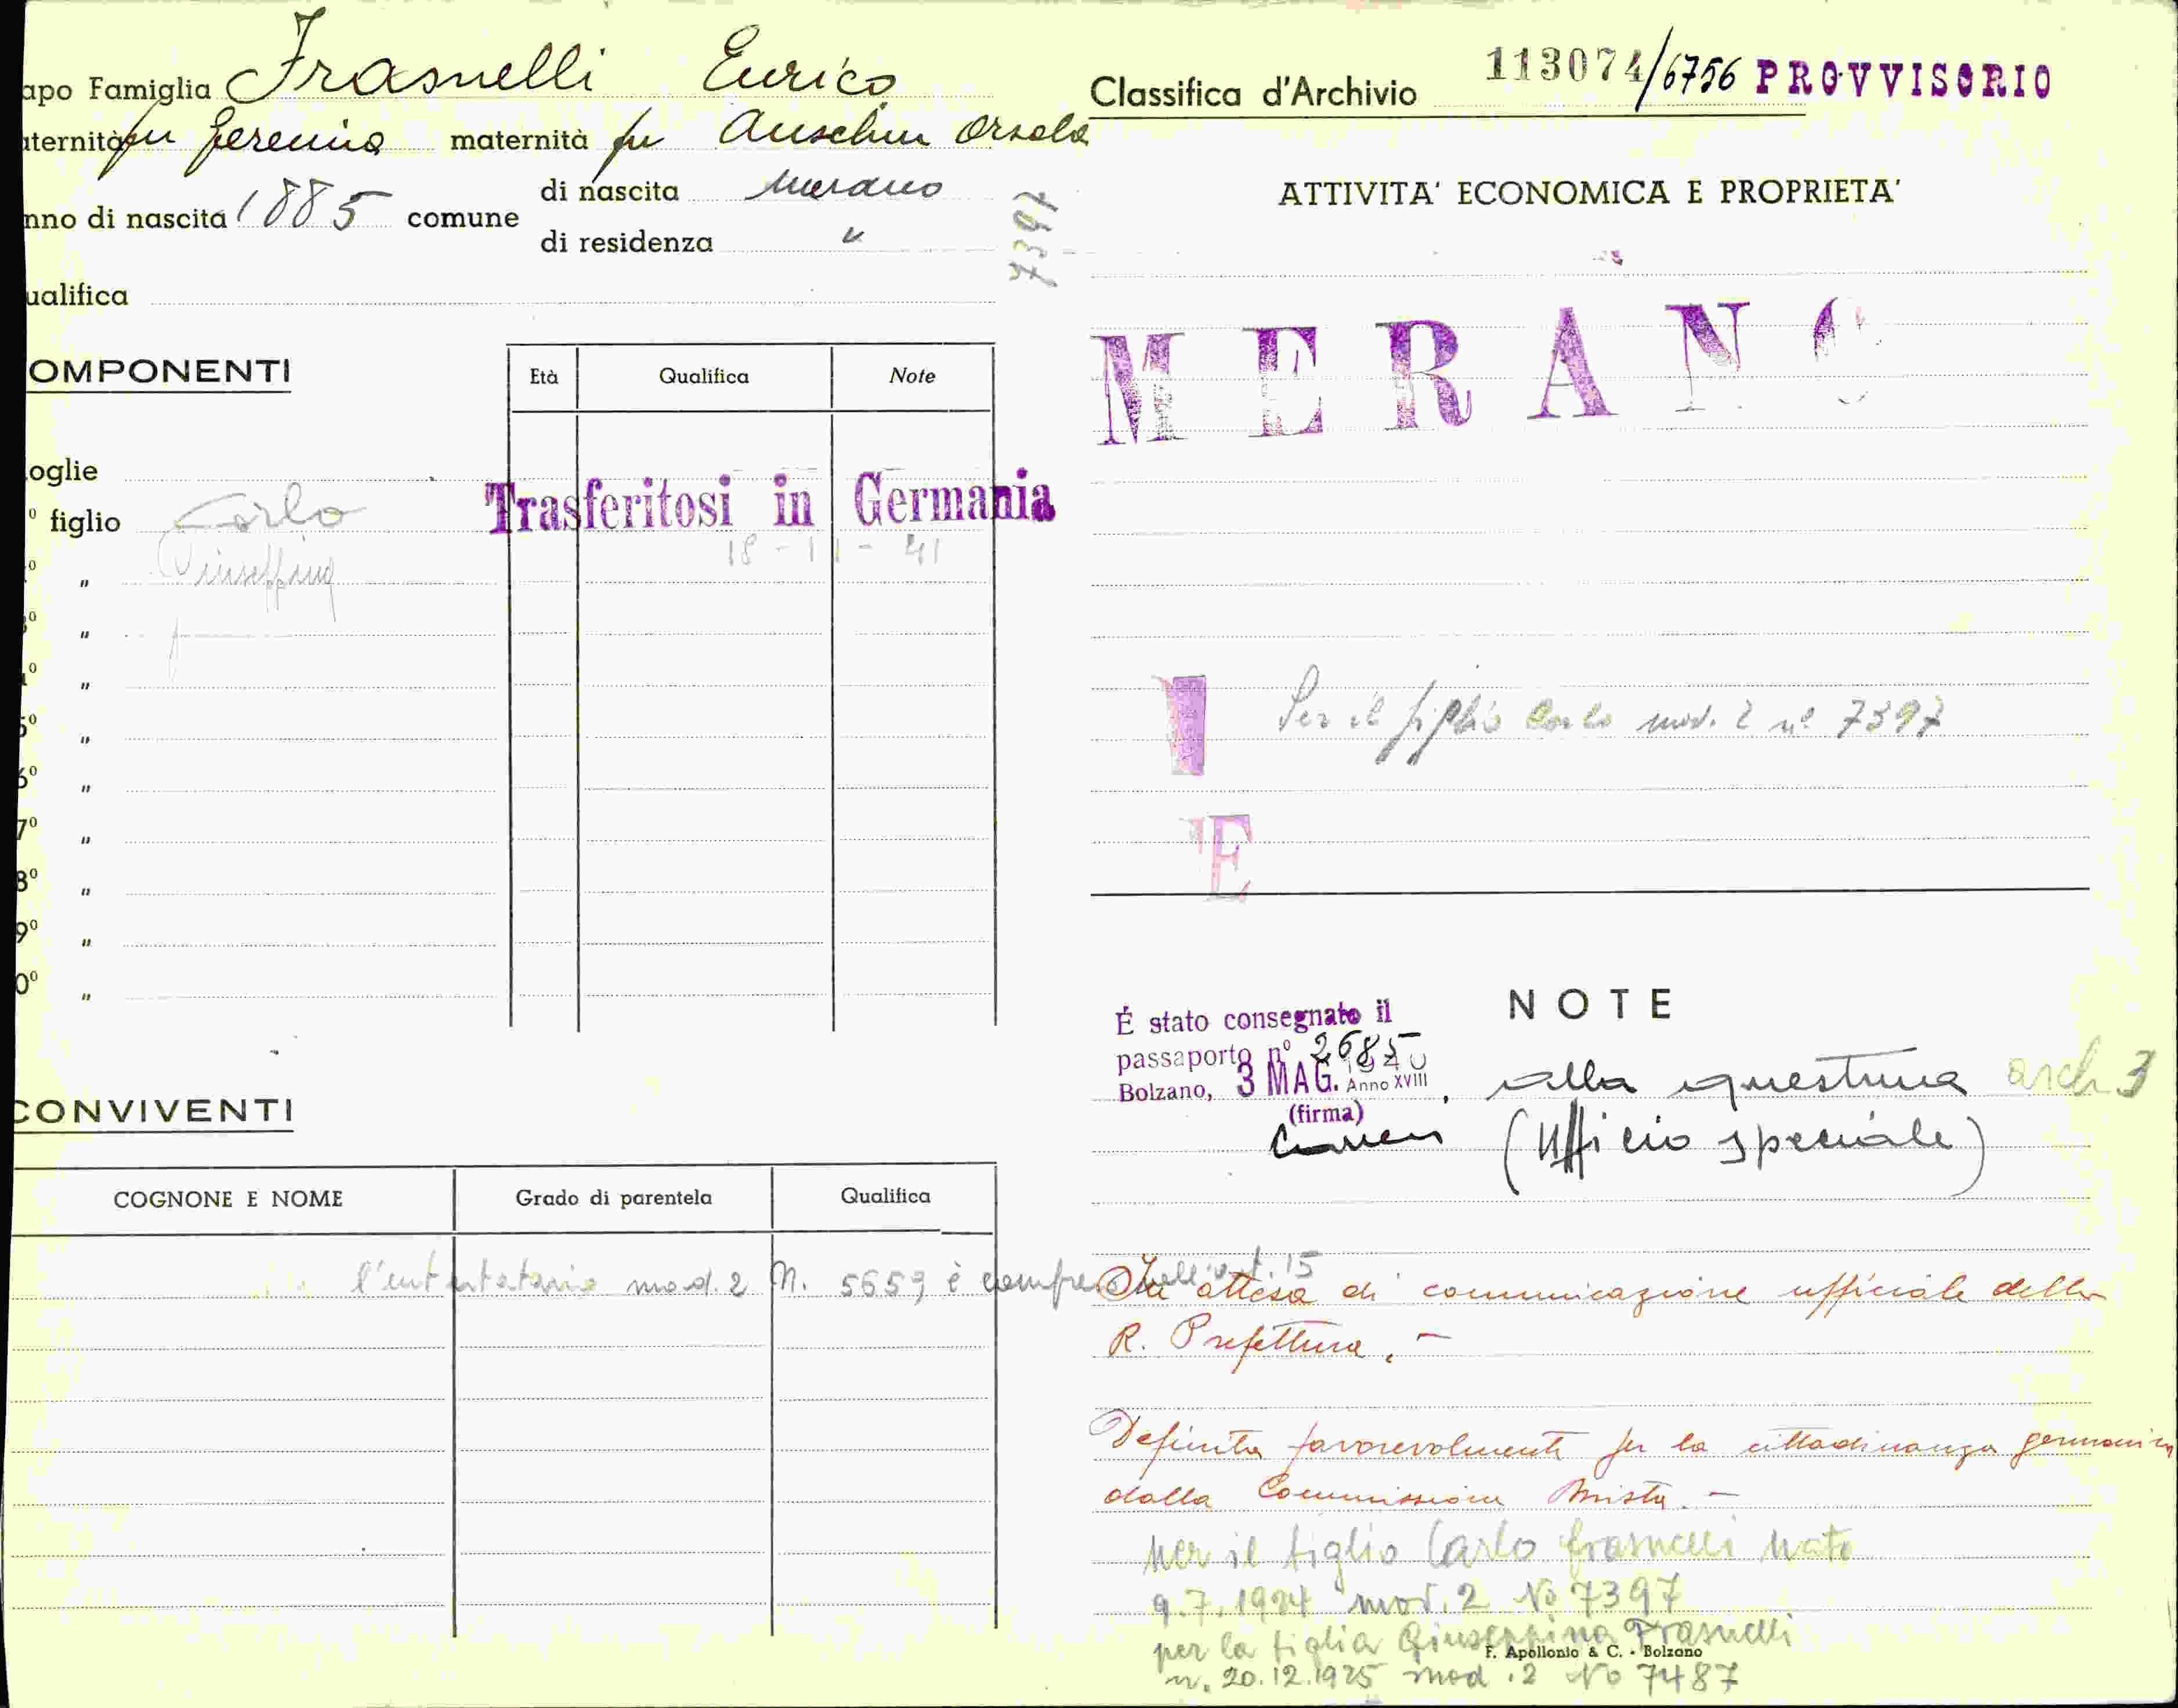 apo Famiglia Frasnelli Enrico
aternità fu Geremia maternità fu Auschin Orsola
nno di nascita 1885 comune di nascita Merano
di residenza "
7397
ualifica
OMPONENTI
Età Qualifica Note
oglie
º figlio Carlo
Trasferitosi in Germania
º " Giuseppina
18-11-41
3º "
4º "
5º "
6º "
7º "
8º "
9º "
0º "
CONVIVENTI
COGNONE E NOME Grado di parentela Qualifica
l'intestatario mod. 2 N. 5659 è compreso nell'art. 15
Classifica d'Archivio 113074/6756 PROVVISORIO
ATTIVITA' ECONOMICA E PROPRIETA'
MERANO
Per il figlio Carlo mod. 2 nº 7397
E
NOTE
É stato consegnato il
passaporto nº 2685
Bolzano, 3 MAG. 1940 Anno XVIII
(firma)
alla questura arch 3
(Ufficio speciale)
In attesa di comunicazione ufficiale della
R. Prefettura. -
Definita favorevolmente per la cittadinanza germanica
dalla Commissione Mista. -
per il figlio Carlo Frasnelli nato
9.7.1924 mod. 2 No 7397
per la figlia Giuseppina Frasnelli
F. Apollonio & C. - Bolzano
n. 20.12.1925 mod. 2 No 7487